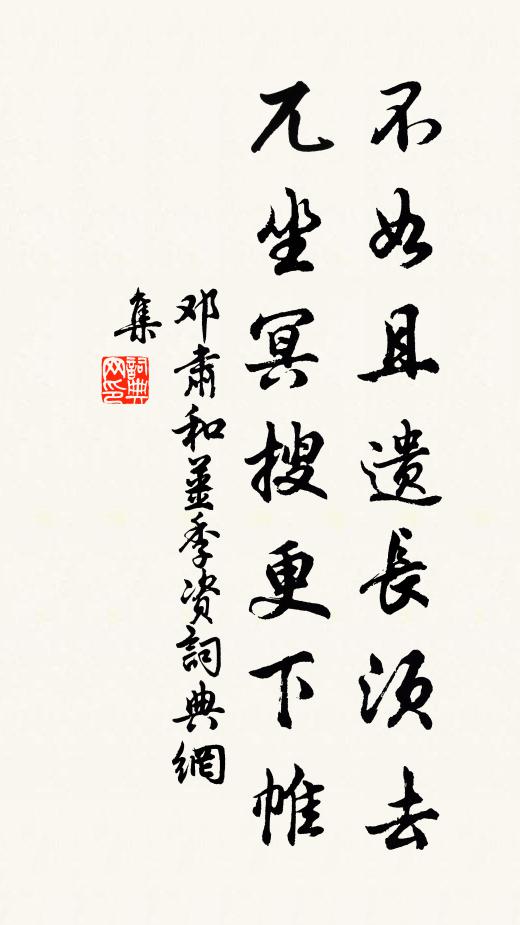 不如且遗長須去
兀坐冥搜更下帷
邓肅和薑季资詞典網
集
詞典
网印